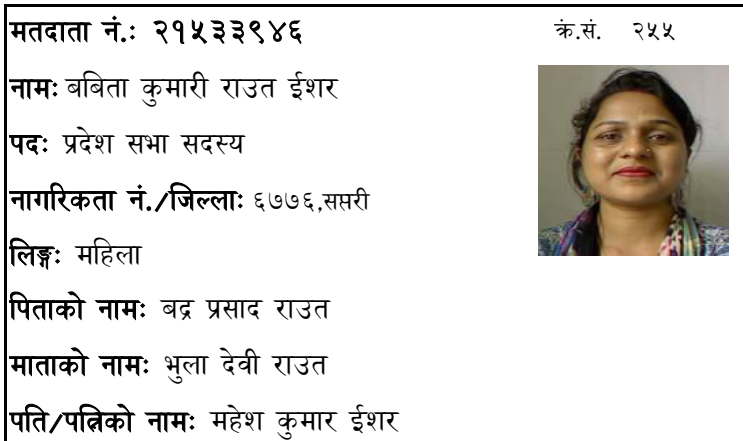 मतदाता नं.: २१५३३९४६ क्रं.सं. २५५
नामः बबिता कुमारी राउत ईशर
पदः प्रदेश सभा सदस्य
नागरिकता नं./जिल्लाः ६७७६,सप्तरी
लिङ्गः महिला
पिताको नामः बद्र प्रसाद राउत
माताको नामः भुला देवी राउत
पति/पत्निको नामः महेश कुमार ईशर